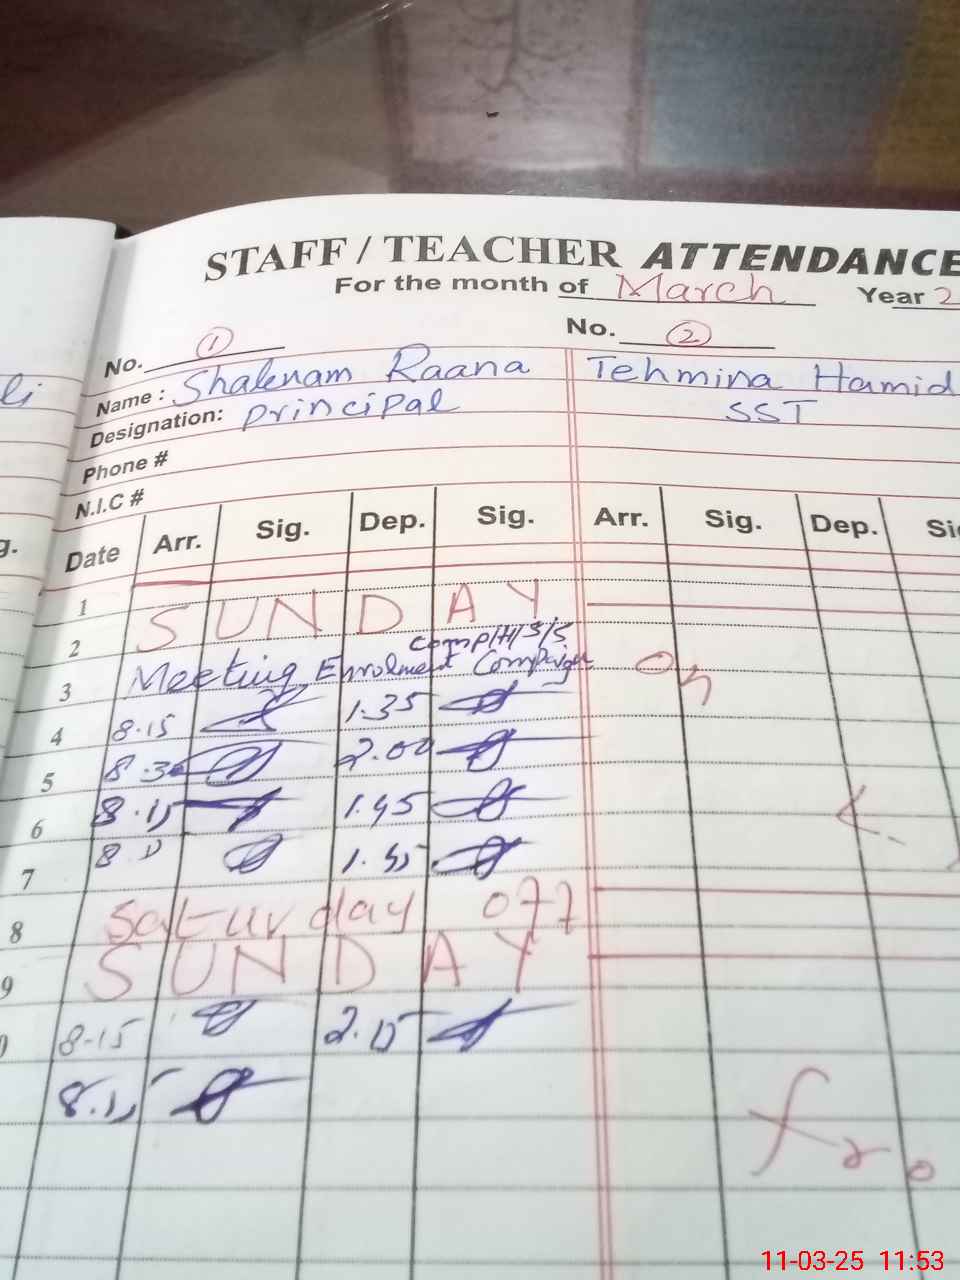 li
STAFF / TEACHER ATTENDANCE
For the month of March Year 2
No. 1 No. 2
Name : Shabnam Raana Tehmina Hamid
Designation: principal SST
Phone #
N.I.C #
g. Date Arr. Sig. Dep. Sig. Arr. Sig. Dep. Si
1
2 SUNDAY
comp/H/S/S
3 Meeting Enrolment Compaign On
4 8.15 1.35
5 8.30 2.00
6 8.15 1.45
7 1.45
8 Saturday off
9 SUNDAY
0 8-15 2.15
8.15
fro
11-03-25 11:53